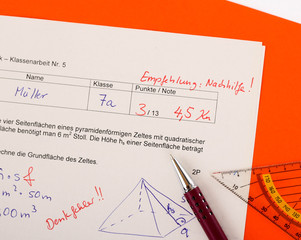 k – Klassenarbeit Nr. 5
Empfehlung: Nachhilfe!
Name Klasse Punkte / Note
Müller 7a 3/13 4,5
vier Seitenflächen eines pyramidenförmigen Zeltes mit quadratischer
fläche benötigt man 6 m² Stoff. Die Höhe hs einer Seitenfläche beträgt
chne die Grundfläche des Zeltes.
2P
s f
m² · 50m
,00m³
Denkfehler!!